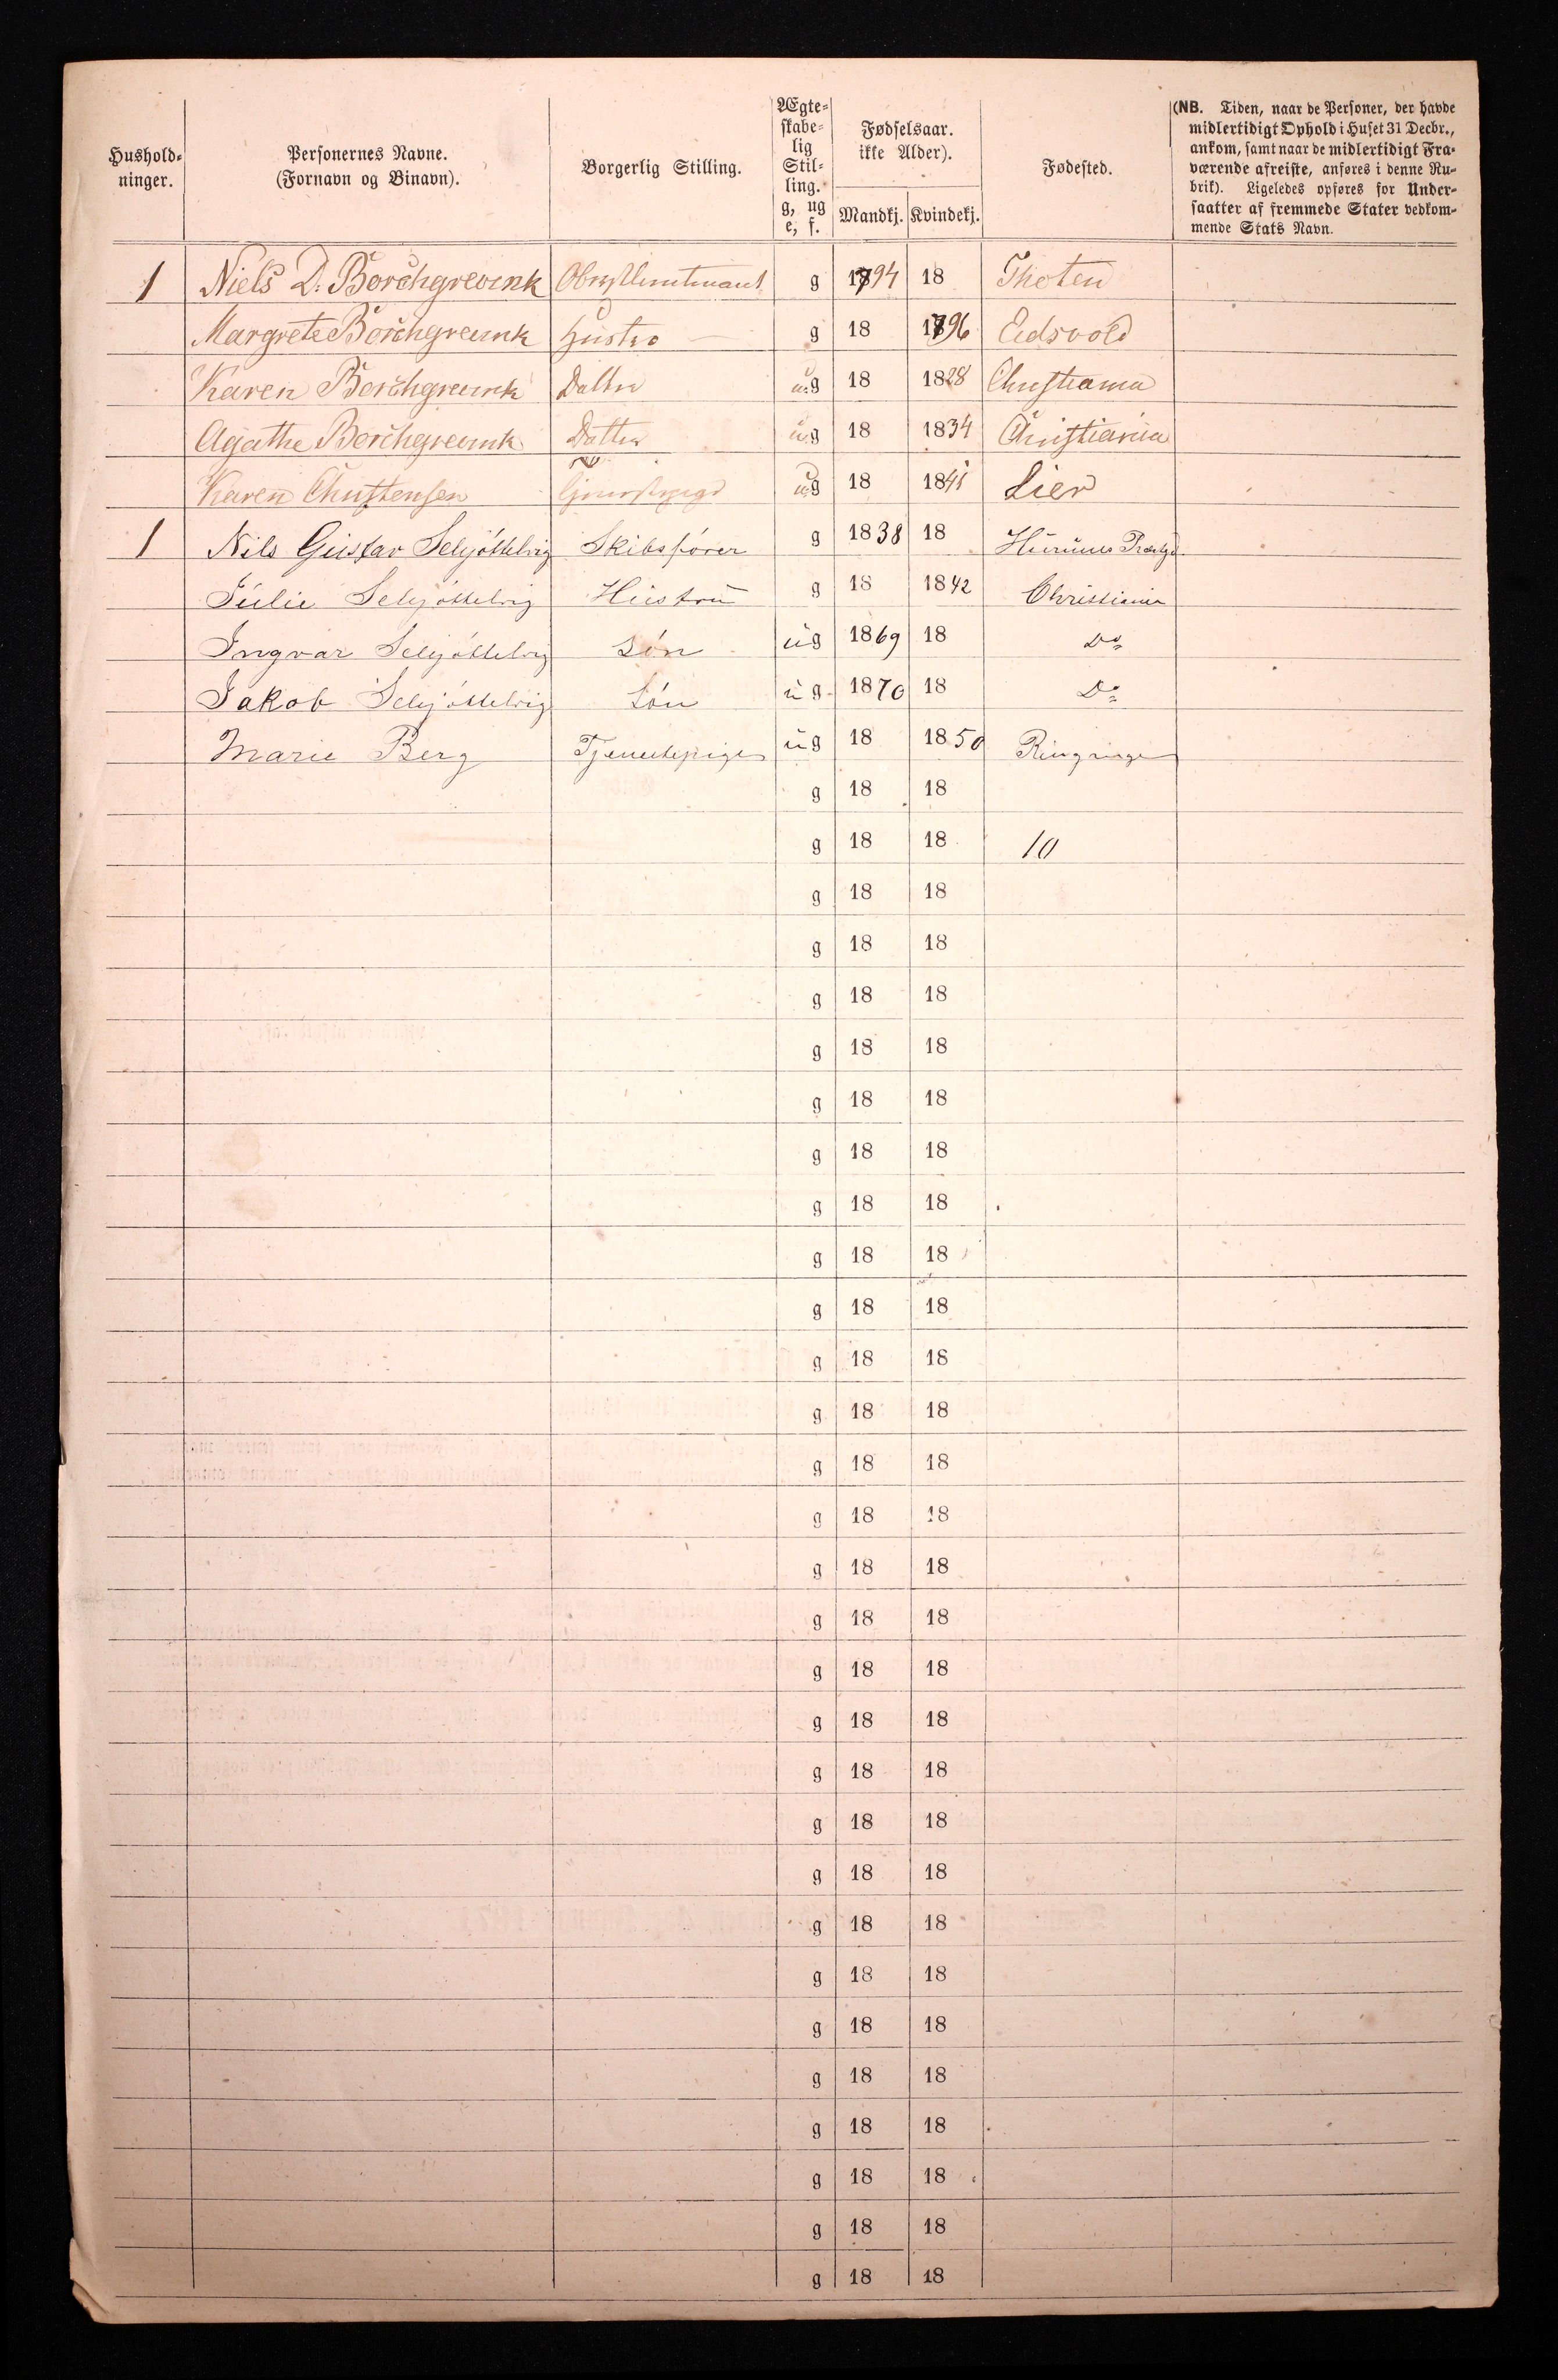 Hushold-
ninger.
Personernes Navne.
(Fornavn og Binavn).
Borgerlig Stilling.
Ægte-
skabe-
lig
Stil-
ling.
g, ug
e, f.
Fødselsaar.
ikke Alder).
Mandkj. Kvindekj.
Fødested.
(NB. Tiden, naar de Personer, der havde
midlertidigt Ophold i Huset 31 Decbr.,
ankom, samt naar de midlertidigt Fra-
værende afreiste, anføres i denne Ru-
brik). Ligeledes opføres for Under-
saatter af fremmede Stater vedkom-
mende Stats Navn.
1 Niels D. Borchgrevink Obrstlieutenant g 1794 18 Thoten
Margrete Borchgrevink Hustro g 18 1796 Eidsvold
Karen Borchgrevink Datter ug 18 1828 Christiania
Agathe Borchgrevink Datter ug 18 1834 Christiania
Karen Christensen ug 18 Lier
1 Nils Gustav g 1838 18
Julie Hustru g 18 1842 Christiania
Ingvar Søn ug 1869 18 Do
Jakob Søn ug 1870 18 Do
Marie Berg Tjenestepige ug 18 1850
g 18 18
g 18 18 10
g 18 18
g 18 18
g 18 18
g 18 18
g 18 18
g 18 18
g 18 18
g 18 18
g 18 18
g 18 18
g 18 18
g 18 18
g 18 18
g 18 18
g 18 18
g 18 18
g 18 18
g 18 18
g 18 18
g 18 18
g 18 18
g 18 18
g 18 18
g 18 18
g 18 18
g 18 18
g 18 18
g 18 18